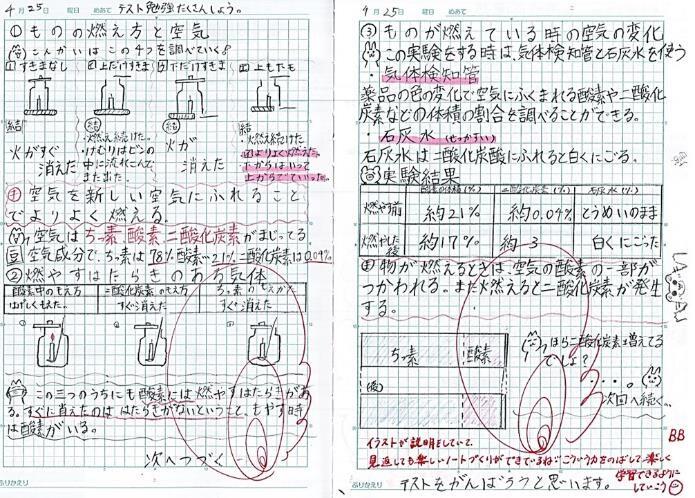 4月25日 めあて テスト勉強たくさんしよう。
①ものの燃え方と空気
こんかいはこの4つを調べていく!
1 すきまなし 2 上だけすきま 3 下だけすきま 4 上も下も
結 火がすぐ消えた
結 ・燃え続けた。・けむりはびんの中に流れこんでまた出た。
結 火が消えた
結 ・燃え続けた ・2よりよく燃えた。・下から入って上からでていった。
空気を新しい空気にふれること
でよりよく燃える。
空気はちっ素、酸素、二酸化炭素がまじってる
豆 空気成分で、ちっ素は78%酸素…21%二酸化炭素は0.04%
②燃やすはたらきのある気体
酸素中のもえ方 はげしくもえた。
二酸化炭素のもえ方 すぐ消えた
ちっ素のもえかた すぐ消えた
この三つのうちにも酸素には燃やすはたらきがあ
る。すぐに消えたのははたらきがないということで、もやす時
は酸素がいる。
次へつづく
ふりかえり
4月25日 めあて
③ものが燃えている時の空気の変化
この実験をする時は、気体検知管と石灰水を使う
・気体検知管
薬品の色の変化で空気にふくまれる酸素や二酸化
炭素などの体積の割合を調べることができる。
・石灰水(せっかいすい)
石灰水は二酸化炭酸にふれると白くにごる。
実験結果
酸素の体積(%) 二酸化炭素(%) 石灰水(%)
燃やす前 約21% 約0.04% とうめいのまま
燃やした後 約17% 約3 白くにごった
物が燃えるときは、空気の酸素の一部が
つかわれる。また燃えると二酸化炭素が発生
する。
ちっ素 酸素
(後)
ほら二酸化炭素増えてる
でしょ?
次回へ続く…
BB
イラストが説明をしていて、
見返しても楽しいノートづくりができているね。こういう力をのばして、楽しく
学習できるように
していこう
ふりかえり
テストをがんばろうと思います。